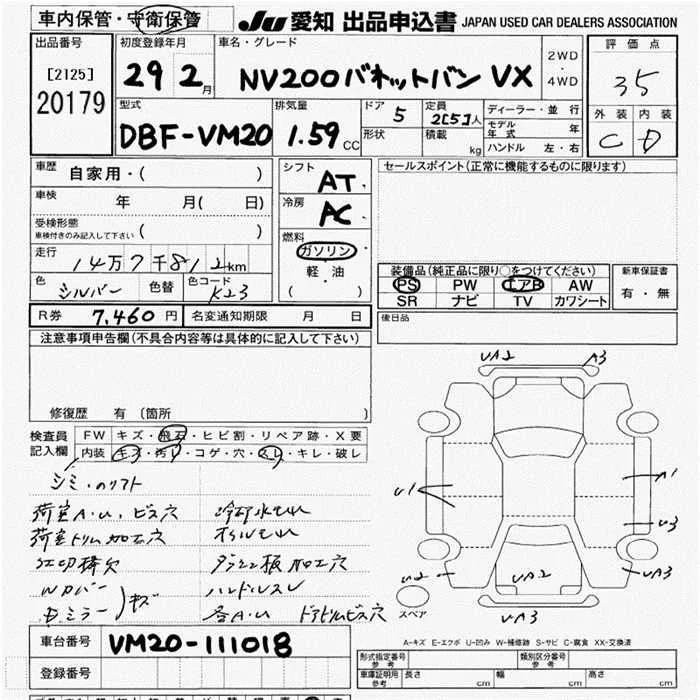 車内保管・守衛保管
JU 愛知 出品申込書 JAPAN USED CAR DEALERS ASSOCIATION
出品番号
[2125]
20179
初度登録年月
29 2月
車名・グレード
NV200バネットバン VX
2WD
・
4WD
評価点
35
外装 内装
C D
型式
DBF-VM20
排気量
1.59 CC
ドア 5
形状
定員 2[5]人
積載 kg
ディーラー・並行
モデル年式 年
ハンドル 左・右
車歴
自家用・( )
車検 年 月( 日)
受検形態
車検付きのみ記入して下さい ( )
走行
14万7千812km
色 シルバー
色替
色コード K23
シフト
AT
冷房
AC
燃料
ガソリン
・
軽・油
( )
セールスポイント(正常に機能するものに限ります)
装備品(純正品に限り○をつけてください)
PS PW エアB AW
SR ナビ TV カワシート
新車保証書
有・無
後日品
R券 7,460円
名変通知期限 月 日
注意事項申告欄(不具合内容等は具体的に記入して下さい)
修復歴 有(箇所 )
検査員
記入欄
FW キズ・飛石・ヒビ割・リペア跡・X要
内装 キズ・汚れ・コゲ・穴・スレ・キレ・破レ
シミ・
荷室A.u.ビス穴 冷却水モレ
荷室トリム加工穴 オイルモレ
加工穴
Wカバー ハンドルスレ
ミラー キズ
各A.u ドアトリムビス穴
UA2
A3
U1
A1
U3
U2
UA2
UA3
UA3
スペア
A-キズ E-エクボ U-凹み W-補修跡 S-サビ C-腐食 XX-交換済
車台番号 VM20-111018
登録番号
形式指定番号 参考
類別区分番号 参考
車庫証明用 参考
長さ cm 幅 cm 高さ cm